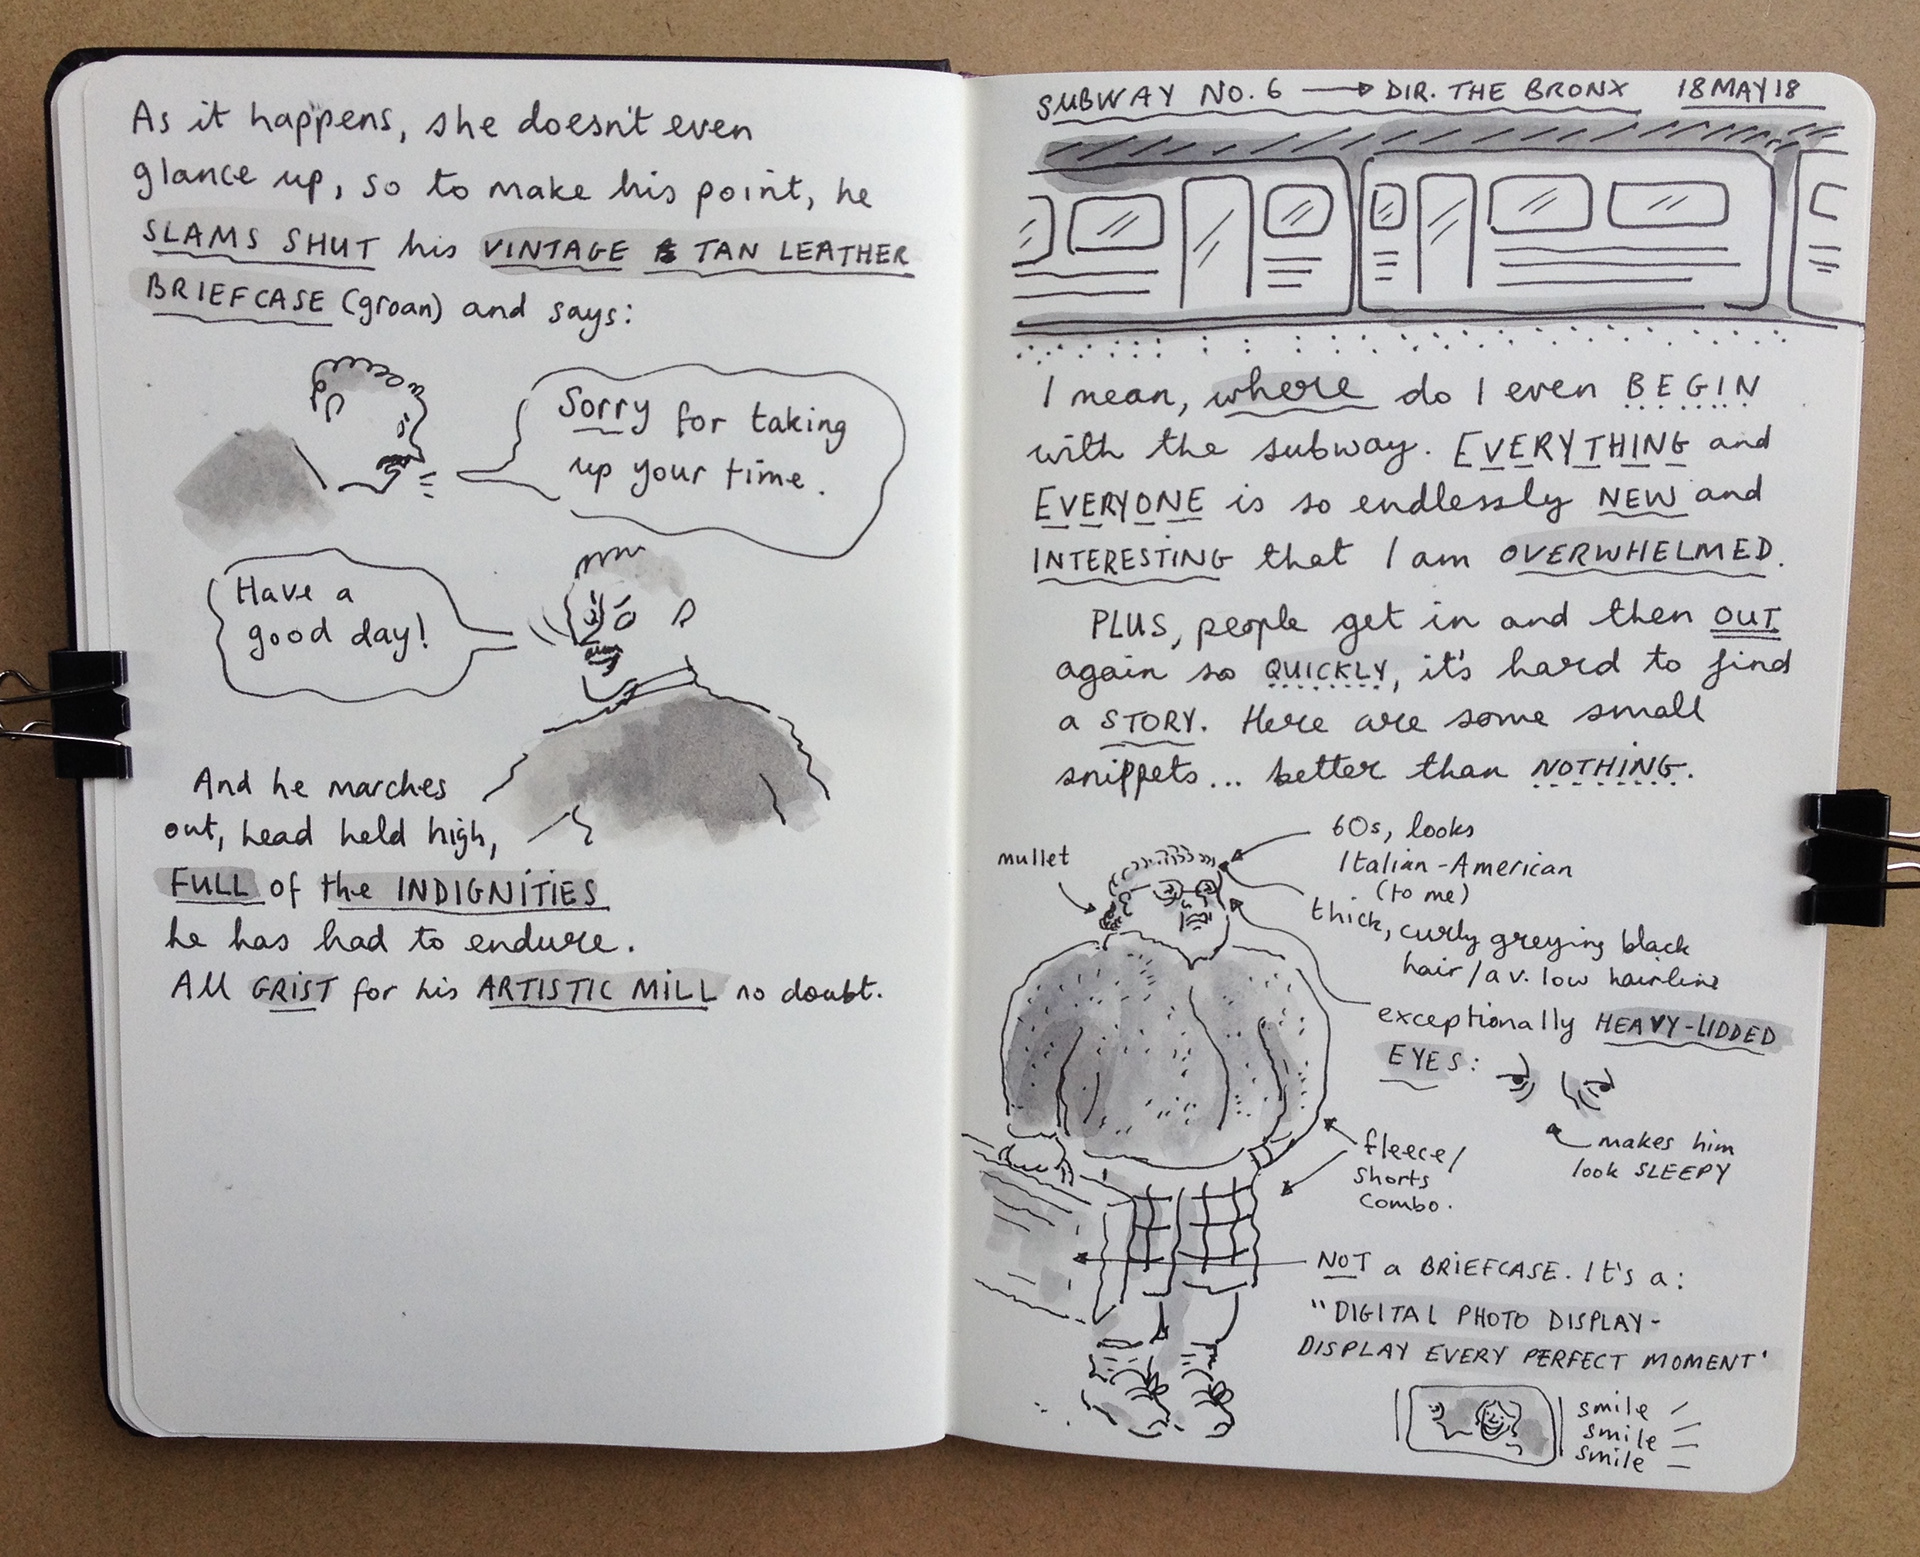 As it happens, she doesn't even
glance up, so to make his point, he
SLAMS SHUT his VINTAGE TAN LEATHER
BRIEFCASE (groan) and says:
Sorry for taking
up your time.
Have a
good day!
And he marches
out, head held high,
FULL of the INDIGNITIES
he has had to endure.
All GRIST for his ARTISTIC MILL no doubt.
SUBWAY NO. 6 → DIR. THE BRONX 18 MAY 18
I mean, where do I even BEGIN
with the subway. EVERYTHING and
EVERYONE is so endlessly NEW and
INTERESTING that I am OVERWHELMED.
PLUS, people get in and then OUT
again so QUICKLY, it's hard to find
a STORY. Here are some small
snippets... better than NOTHING.
mullet
60s, looks
Italian-American
(to me)
thick, curly greying black
hair/a v. low hairline
exceptionally HEAVY-LIDDED
EYES:
makes him
look SLEEPY
fleece/
shorts
combo.
NOT a BRIEFCASE. It's a:
"DIGITAL PHOTO DISPLAY-
DISPLAY EVERY PERFECT MOMENT'
smile
smile
smile